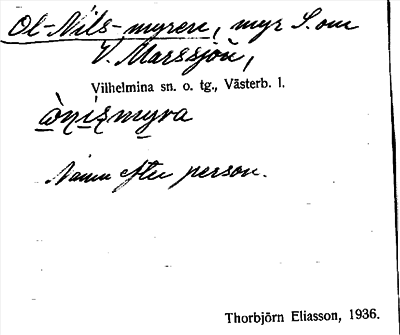 Ol-Nils-myren, myr S. om
V. Marssjön,
Vilhelmina sn. o. tg., Västerb. l.
Namn efter person.
Thorbjörn Eliasson, 1936.